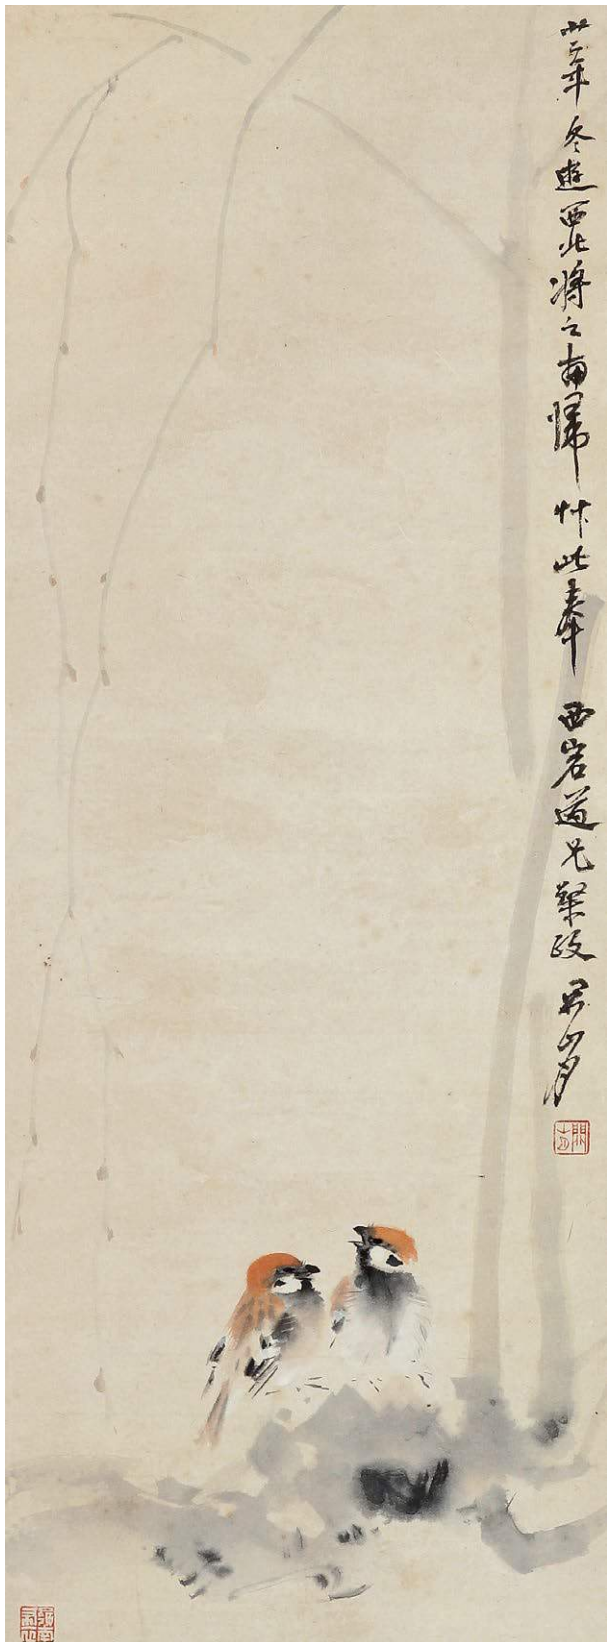 卅二年冬遊西北將之南歸艸此奉西岩道兄粲政關山月